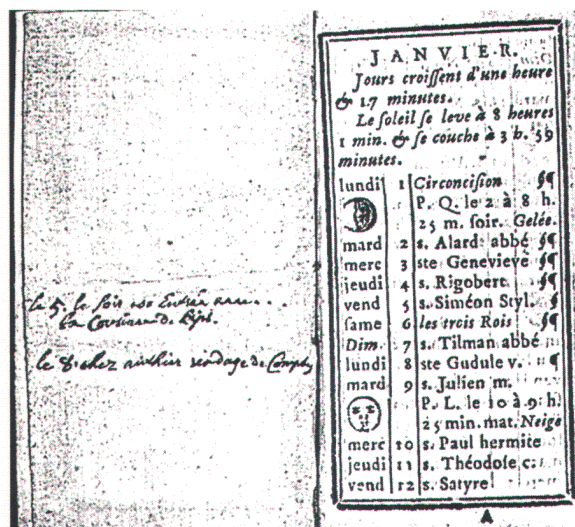 le 5. le soir
le 8 chez
JANVIER.
Jours croiſſent d'une heure
& 17 minutes.
Le ſoleil ſe leve à 8 heures
1 min. & ſe couche à 3 h. 59
minutes.
lundi 1 Circonciſion §¶
P. Q. le 2 à 8 h.
25 m. ſoir. Gelée.
mard 2 s. Alard abbé §¶
merc 3 ste Genevieve §¶
jeudi 4 s. Rigobert §¶
vend 5 s. Siméon Styl. §
ſame 6 les trois Rois §¶
Dim. 7 s. Tilman abbé
lundi 8 ste Gudule v. ¶
mard 9 s. Julien m.
P. L. le 10 à 9 h.
25 min. mat. Neige
merc 10 s. Paul hermite
jeudi 11 s. Théodoſe c.
vend 12 s. Satyre